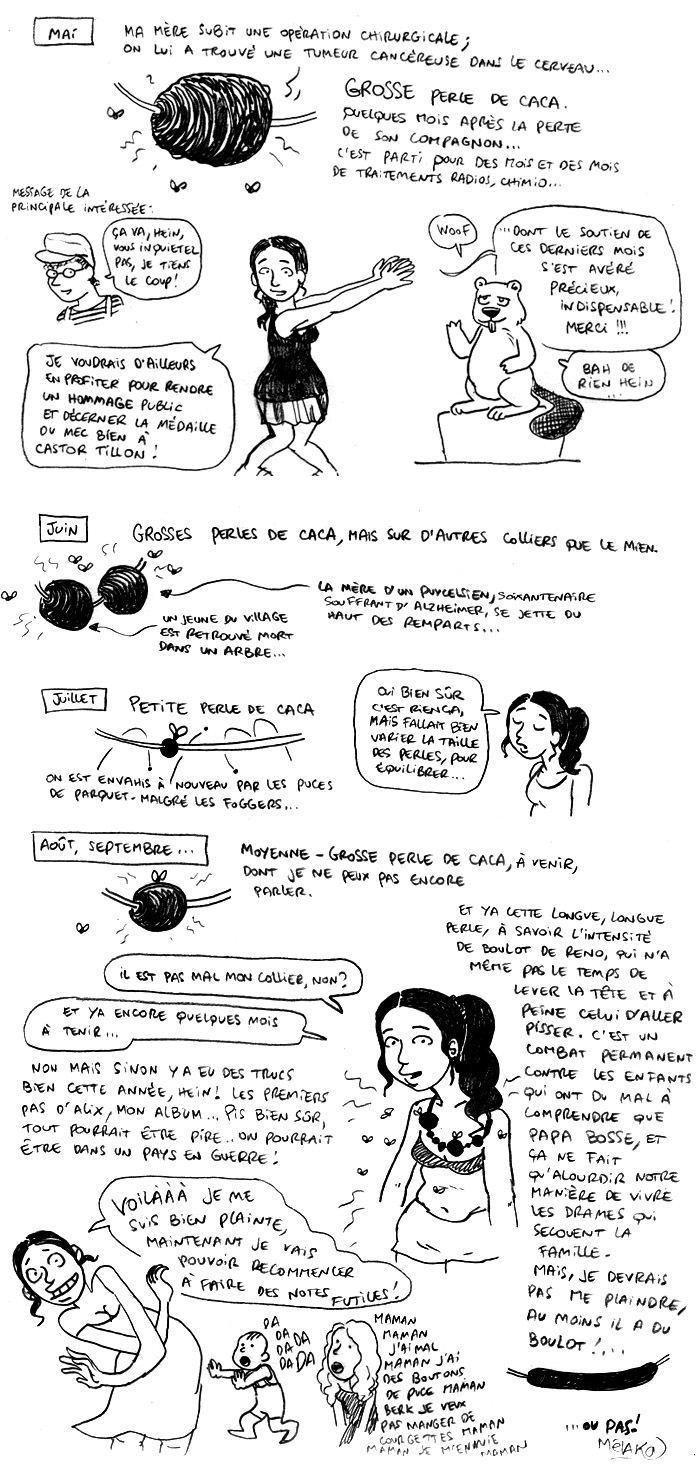 MAI
MA MÈRE SUBIT UNE OPÉRATION CHIRURGICALE ;
ON LUI A TROUVÉ UNE TUMEUR CANCÉREUSE DANS LE CERVEAU...
?
GROSSE PERLE DE CACA.
QUELQUES MOIS APRÈS LA PERTE
DE SON COMPAGNON...
C'EST PARTI POUR DES MOIS ET DES MOIS
DE TRAITEMENTS RADIOS, CHIMIO...
MESSAGE DE LA
PRINCIPALE INTÉRESSÉE :
ÇA VA, HEIN,
VOUS INQUIETEZ
PAS, JE TIENS
LE COUP !
JE VOUDRAIS D'AILLEURS
EN PROFITER POUR RENDRE
UN HOMMAGE PUBLIC
ET DÉCERNER LA MÉDAILLE
DU MEC BIEN À
CASTOR TILLON !
WOOF
...DONT LE SOUTIEN DE
CES DERNIERS MOIS
S'EST AVÉRÉ
PRÉCIEUX,
INDISPENSABLE !
MERCI !!!
BAH DE
RIEN HEIN
...
JUIN
GROSSES PERLES DE CACA, MAIS SUR D'AUTRES COLLIERS QUE LE MIEN.
LA MÈRE D'UN PUYCELSIEN, SOIXANTENAIRE
SOUFFRANT D'ALZHEIMER, SE JETTE DU
HAUT DES REMPARTS...
UN JEUNE DU VILLAGE
EST RETROUVÉ MORT
DANS UN ARBRE...
JUILLET
PETITE PERLE DE CACA
ON EST ENVAHIS À NOUVEAU PAR LES PUCES
DE PARQUET - MALGRÉ LES FOGGERS...
OUI BIEN SÛR
C'EST RIEN ÇA,
MAIS FALLAIT BIEN
VARIER LA TAILLE
DES PERLES, POUR
ÉQUILIBRER...
AOÛT, SEPTEMBRE...
MOYENNE - GROSSE PERLE DE CACA, À VENIR,
DONT JE NE PEUX PAS ENCORE
PARLER.
IL EST PAS MAL MON COLLIER, NON ?
ET YA ENCORE QUELQUES MOIS
À TENIR...
NON MAIS SINON Y A EU DES TRUCS
BIEN CETTE ANNÉE, HEIN ! LES PREMIERS
PAS D'ALIX, MON ALBUM... PIS BIEN SÛR,
TOUT POURRAIT ÊTRE PIRE.. ON POURRAIT
ÊTRE DANS UN PAYS EN GUERRE !
ET YA CETTE LONGUE, LONGUE
PERLE, À SAVOIR L'INTENSITÉ
DE BOULOT DE RENO, QUI N'A
MÊME PAS LE TEMPS DE
LEVER LA TÊTE ET À
PEINE CELUI D'ALLER
PISSER. C'EST UN
COMBAT PERMANENT
CONTRE LES ENFANTS
QUI ONT DU MAL À
COMPRENDRE QUE
PAPA BOSSE, ET
ÇA NE FAIT
QU'ALOURDIR NOTRE
MANIÈRE DE VIVRE
LES DRAMES QUI
SECOUENT LA
FAMILLE.
MAIS, JE DEVRAIS
PAS ME PLAINDRE,
AU MOINS IL A DU
BOULOT !...
...OU PAS !
VOILÀÀÀ JE ME
SUIS BIEN PLAINTE,
MAINTENANT JE VAIS
POUVOIR RECOMMENCER
À FAIRE DES NOTES FUTILES !
DA
DA
DA DA
DA DA
MAMAN
MAMAN
J'AI MAL
MAMAN J'AI
DES BOUTONS
DE PUCE MAMAN
BERK JE VEUX
PAS MANGER DE
COURGETTES MAMAN
MAMAN JE M'ENNUIE
MAMAN
MéLAKa